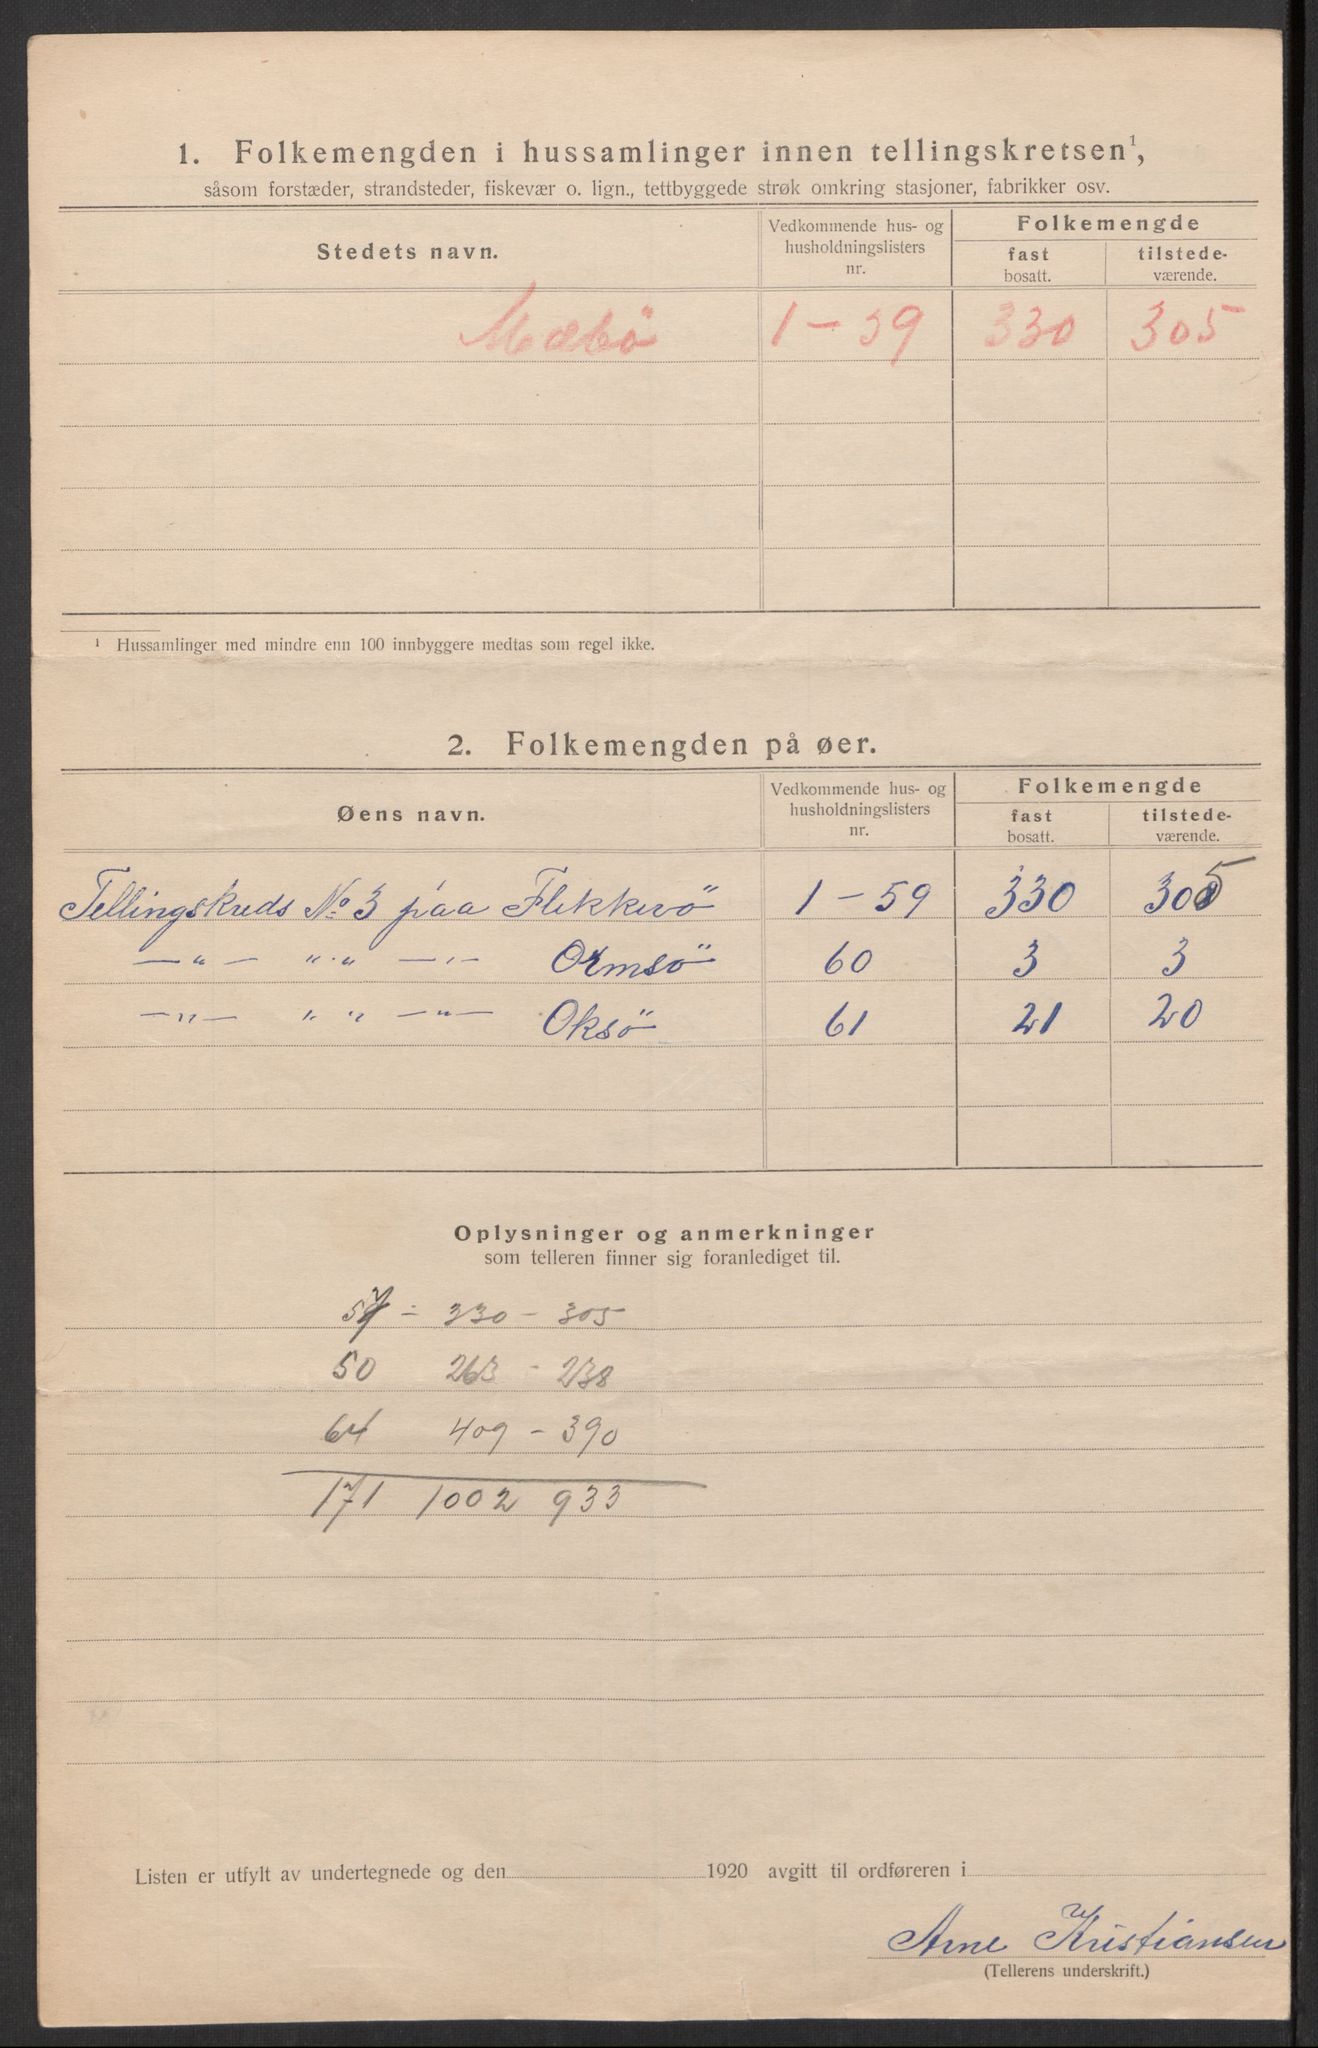 1. Folkemengden i hussamlinger innen tellingskretsen¹,
såsom forstæder, strandsteder, fiskevær o. lign., tettbyggede strøk omkring stasjoner, fabrikker osv.
Stedets navn.
Vedkommende hus- og
husholdningslisters
nr.
Folkemengde
fast
bosatt.
tilstede-
værende.
Mæbö 1 - 39 330 305
¹ Hussamlinger med mindre enn 100 innbyggere medtas som regel ikke.
2. Folkemengden på øer.
Øens navn.
Vedkommende hus- og
husholdningslisters
nr.
Folkemengde
fast
bosatt.
tilstede-
værende.
Tellingskreds No 3 paa Flekkerö 1 - 59 330 305
— " — " " — " — Ormsö 60 3 3
— " — " " — " — Oksö 61 21 20
Oplysninger og anmerkninger
som telleren finner sig foranlediget til.
57 - 330 - 305
50 263 - 238
64 409 - 390
171 1002 933
Listen er utfylt av undertegnede og den 1920 avgitt til ordføreren i
Arne Kristiansen
(Tellerens underskrift.)